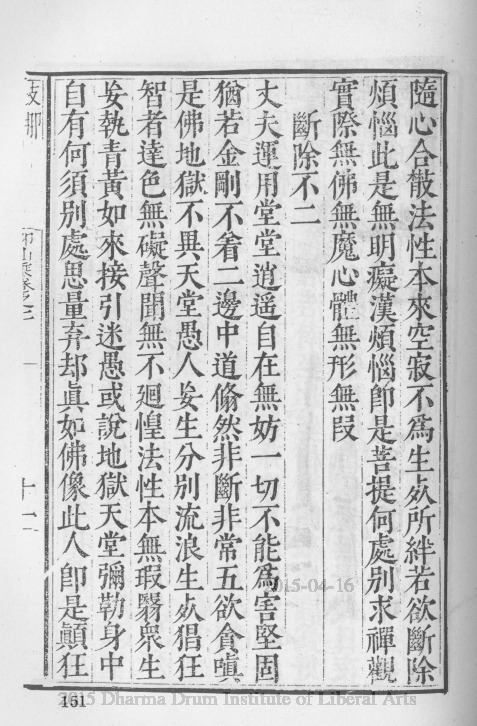 隨心合散法性本來空寂不爲生死所絆若欲斷除
煩惱此是無明癡漢煩惱卽是菩提何處別求禪觀
實際無佛無魔心體無形無叚
斷除不二
丈夫運用堂堂逍遥自在無妨一切不能爲害堅固
猶若金剛不着二邊中道翛然非斷非常五欲貪嗔
是佛地獄不異天堂愚人妄生分別流浪生死猖狂
智者達色無礙聲聞無不廻惶法性本無瑕翳衆生
妄執青黃如來接引迷愚或說地獄天堂彌勒身中
自有何須別處思量弃却眞如佛像此人卽是顚狂
十一
161
2015-04-16
2015 Dharma Drum Institute of Liberal Arts